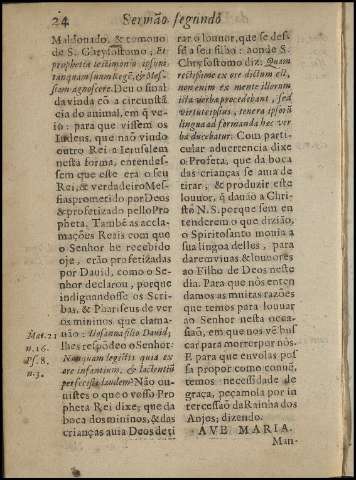 24 Sermão segundo
Maldonado, & tomouo
de S. Chrysostomo, Et
prophetia testimonio ipsum
tanquam suum Regẽ, & Mes-
siam agnoscere. Deu o sinal
da vinda cõ a circunstã
cia do animal, em q̃ ve-
io: para que vissem os
Iudeus, que não vindo
outro Rei a Ierusalem
nesta forma, entendes-
sem que este era o seu
Rei, & verdadeiro Mes-
sias prometido por Deos
& profetizado pello Pro
pheta. Tambẽ as accla-
mações Reais com que
o Senhor he recebido
oje, erão profetizadas
por Dauid, como o Se-
nhor declarou, porque
indiguandosse os Scri-
bas, & Phariseus de ver
os mininos que clama-
uão: Hosanna filio Dauid,
lhes respõdeo o Senhor:
Nunquam legistis quia ex
ore infantium, & lactentiũ
perfecisti laudem? Não ou-
uistes o que o vosso Pro
pheta Rei dixe; que da
boca dos mininos, & das
crianças auia Deos de ti
Mat. 21
n. 16.
Ps. 8.
n. 3.
rar o louuor, que se des-
se a seu filho: aonde S.
Chrysostomo diz: Quam
rectissime ex ore dictum est,
non enim ex mente illorum
illa verba procedebant, sed
virtute ipsius, tenera ipsorũ
lingua ad formanda hec ver
ba ducebatur. Com parti-
cular aduertencia dixe
o Profeta, que da boca
das crianças se auia de
tirar, & produzir este
louuor, q̃ dauão a Chri-
sto N. S. porque sem en
tenderem o que dizião,
o Spirito santo mouia a
sua lingoa delles, para
darem viuas & louuores
ao Filho de Deos neste
dia. Para que nós enten
damos as muitas razões
que temos para louuar
ao Senhor nesta occa-
siaõ, em que nos vẽ bus
car para morrer por nós.
E para que em voslas pos
sa propor como conuẽ,
temos necessidade de
graça, peçamola por in
tercessaõ da Rainha dos
Anjos; dizendo.
AVE MARIA.
Man-